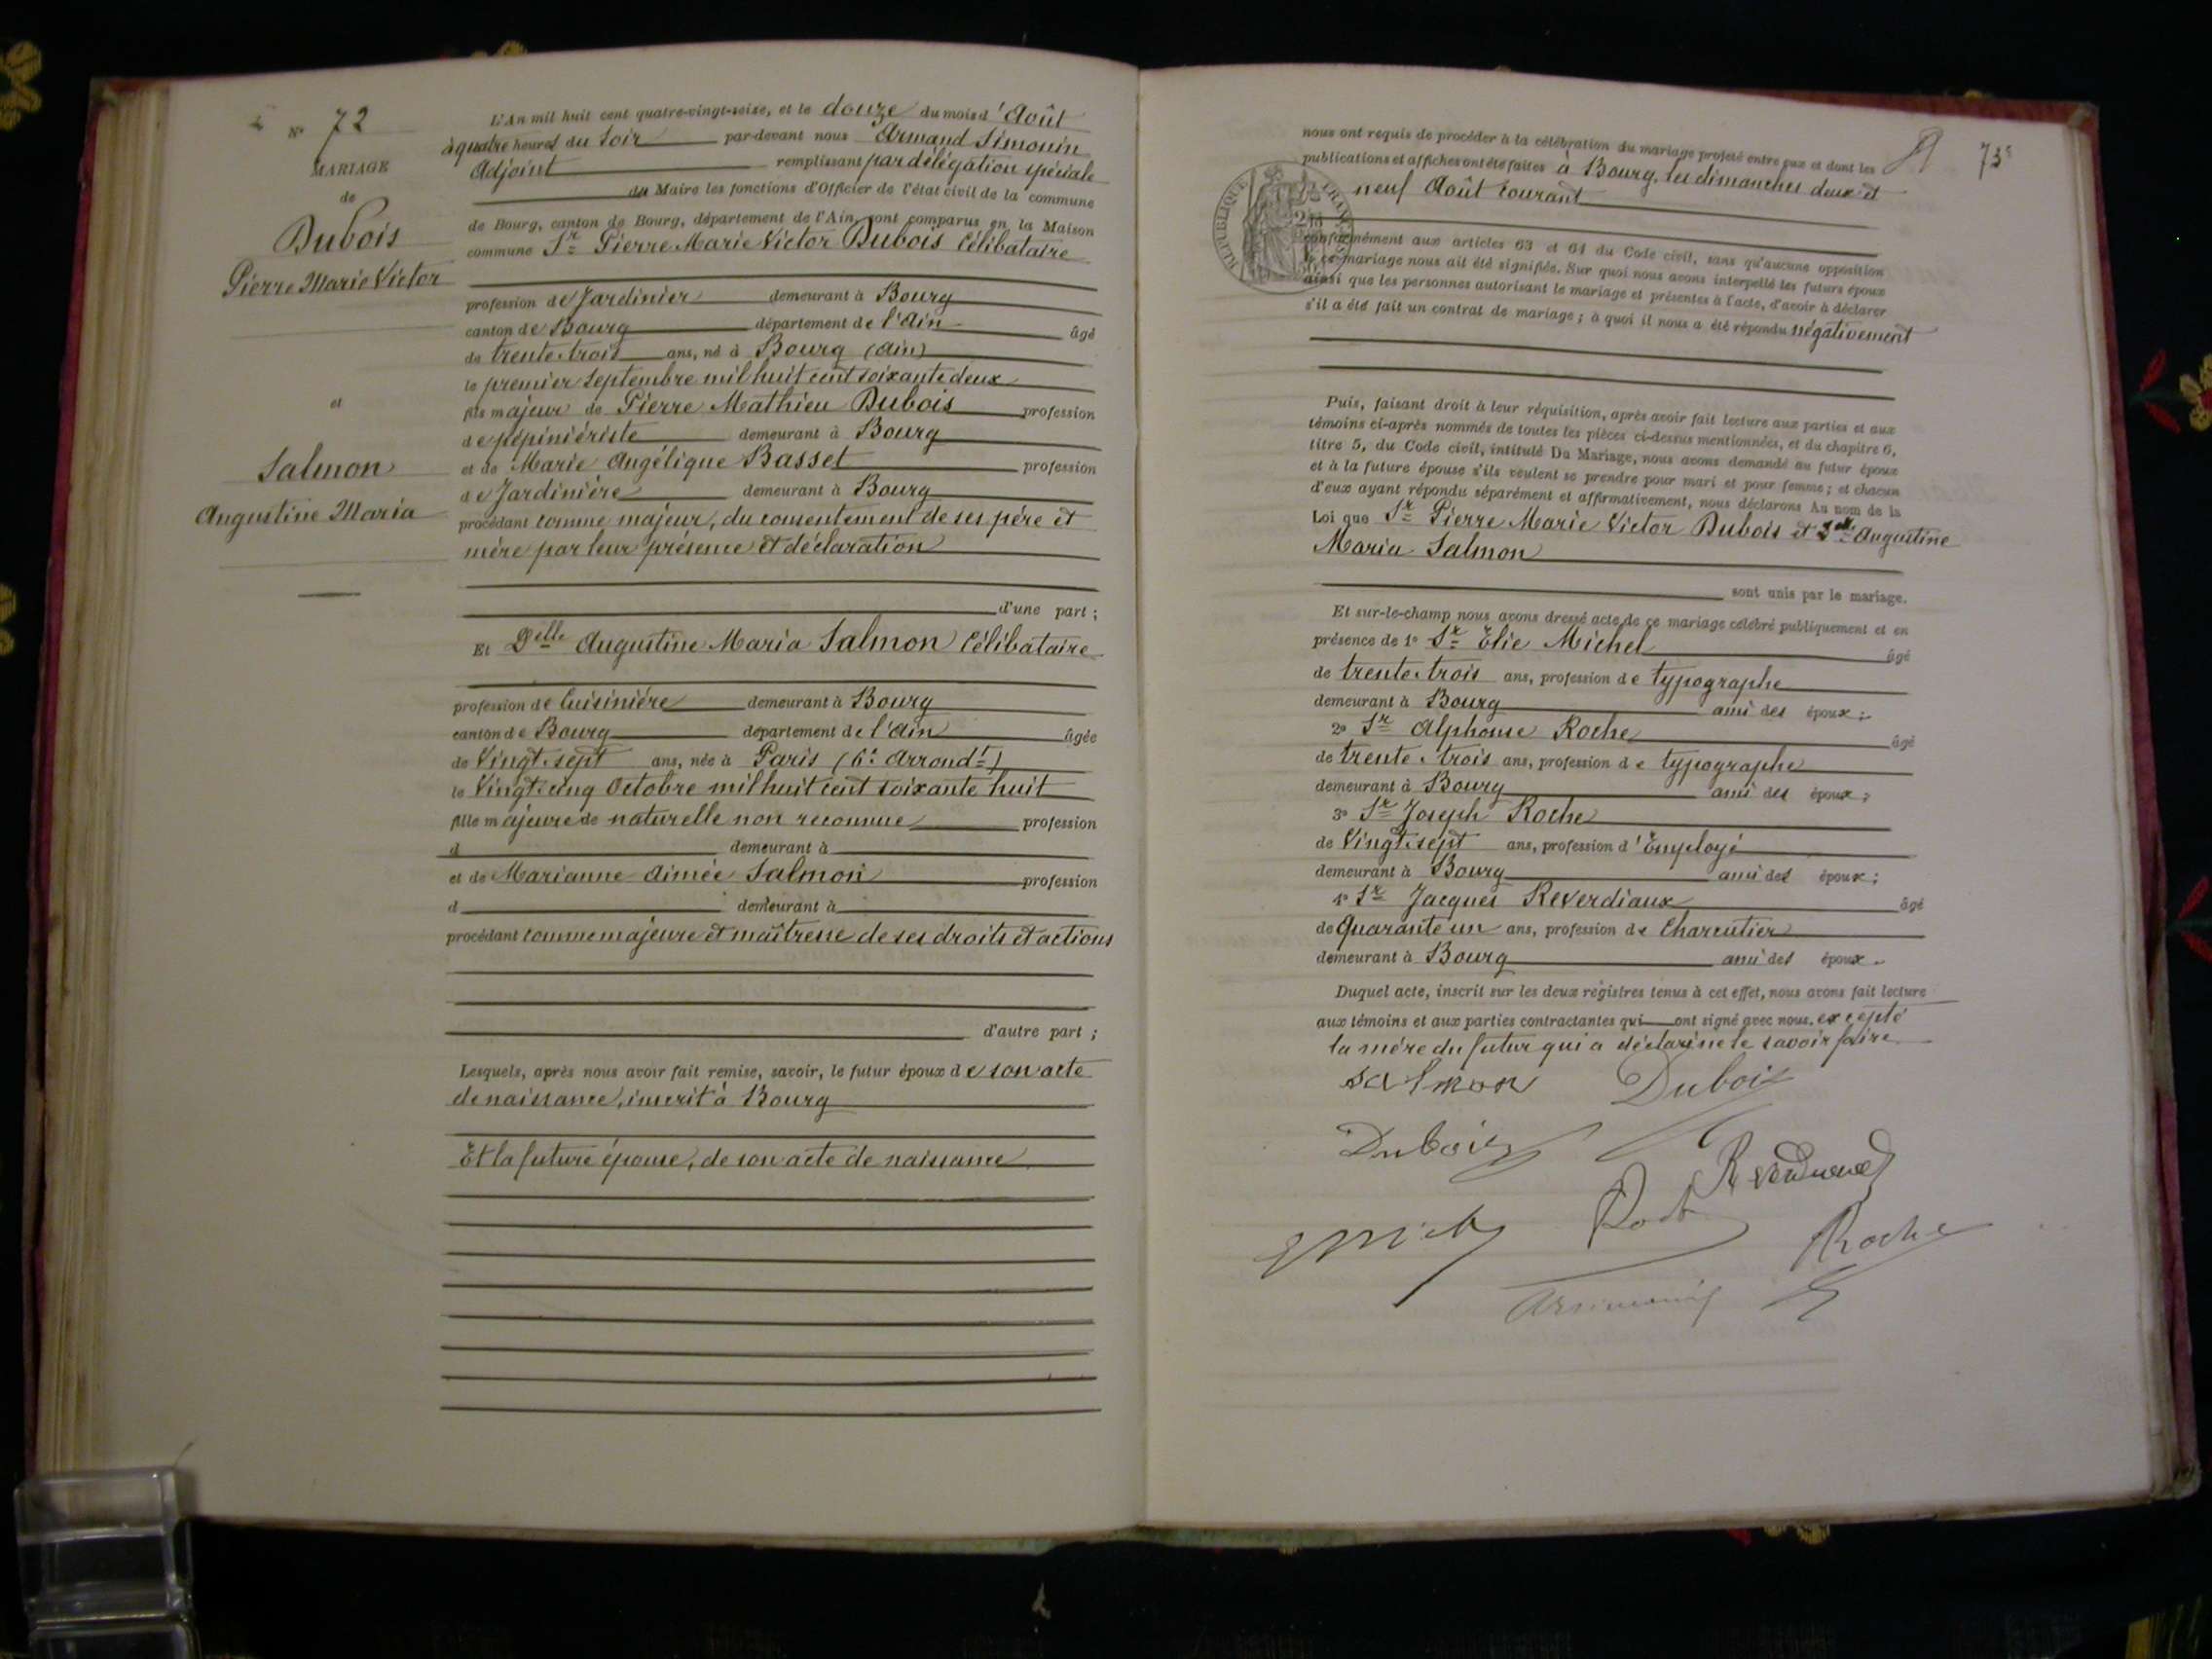 N° 72
MARIAGE
de
Dubois
Pierre Marie Victor
et
Salmon
Augustine Maria
L'An mil huit cent quatre-vingt-seize, et le douze du mois d'Août
à quatre heures du soir par-devant nous Armand Simonin
Adjoint remplissant par délégation spéciale
du Maire les fonctions d'Officier de l'état civil de la commune
de Bourg, canton de Bourg, département de l'Ain, sont comparus en la Maison
commune Sr Pierre Marie Victor Dubois Célibataire
profession de Jardinier demeurant à Bourg
canton de Bourg département de l'Ain âgé
de trente trois ans, né à Bourg (Ain)
le premier Septembre mil huit cent soixante deux
fils majeur de Pierre Mathieu Dubois profession
de pépiniériste demeurant à Bourg
et de Marie Angélique Basset profession
de Jardinière demeurant à Bourg
procédant comme majeur, du consentement de ses père et
mère par leur présence et déclaration
d'une part ;
Et Delle Augustine Maria Salmon Célibataire
profession de Cuisinière demeurant à Bourg
canton de Bourg département de l'Ain âgée
de Vingt sept ans, née à Paris (6e Arrondt)
le Vingt cinq Octobre mil huit cent soixante huit
fille majeure de naturelle non reconnue profession
d demeurant à
et de Marianne Aimée Salmon profession
d demeurant à
procédant comme majeure et maîtresse de ses droits et actions
d'autre part ;
Lesquels, après nous avoir fait remise, savoir, le futur époux de son acte
de naissance, inscrit à Bourg
Et la future épouse, de son acte de naissance
73e
nous ont requis de procéder à la célébration du mariage projeté entre eux et dont les
publications et affiches ont été faites à Bourg, les dimanches deux et
neuf Août courant
RÉPUBLIQUE FRANÇAISE
conformément aux articles 63 et 64 du Code civil, sans qu'aucune opposition
à ce mariage nous ait été signifiée. Sur quoi nous avons interpellé les futurs époux
ainsi que les personnes autorisant le mariage et présentes à l'acte, d'avoir à déclarer
s'il a été fait un contrat de mariage ; à quoi il nous a été répondu négativement
Puis, faisant droit à leur réquisition, après avoir fait lecture aux parties et aux
témoins ci-après nommés de toutes les pièces ci-dessus mentionnées, et du chapitre 6,
titre 5, du Code civil, intitulé Du Mariage, nous avons demandé au futur époux
et à la future épouse s'ils veulent se prendre pour mari et pour femme ; et chacun
d'eux ayant répondu séparément et affirmativement, nous déclarons Au nom de la
Loi que Sr Pierre Marie Victor Dubois et Delle Augustine
Maria Salmon
sont unis par le mariage.
Et sur-le-champ nous avons dressé acte de ce mariage célébré publiquement et en
présence de 1° Sr Elie Michel âgé
de trente trois ans, profession de typographe
demeurant à Bourg ami des époux ;
2° Sr Alphonse Roche âgé
de trente trois ans, profession de typographe
demeurant à Bourg ami des époux ;
3° Sr Joseph Roche
de Vingt sept ans, profession d'Employé
demeurant à Bourg ami des époux ;
4° Sr Jacques Reverdiaux âgé
de Quarante un ans, profession de Charcutier
demeurant à Bourg ami des époux.
Duquel acte, inscrit sur les deux registres tenus à cet effet, nous avons fait lecture
aux témoins et aux parties contractantes qui ont signé avec nous, excepté
la mère du futur qui a déclaré ne le savoir faire
Salmon Dubois
Dubois
Roche